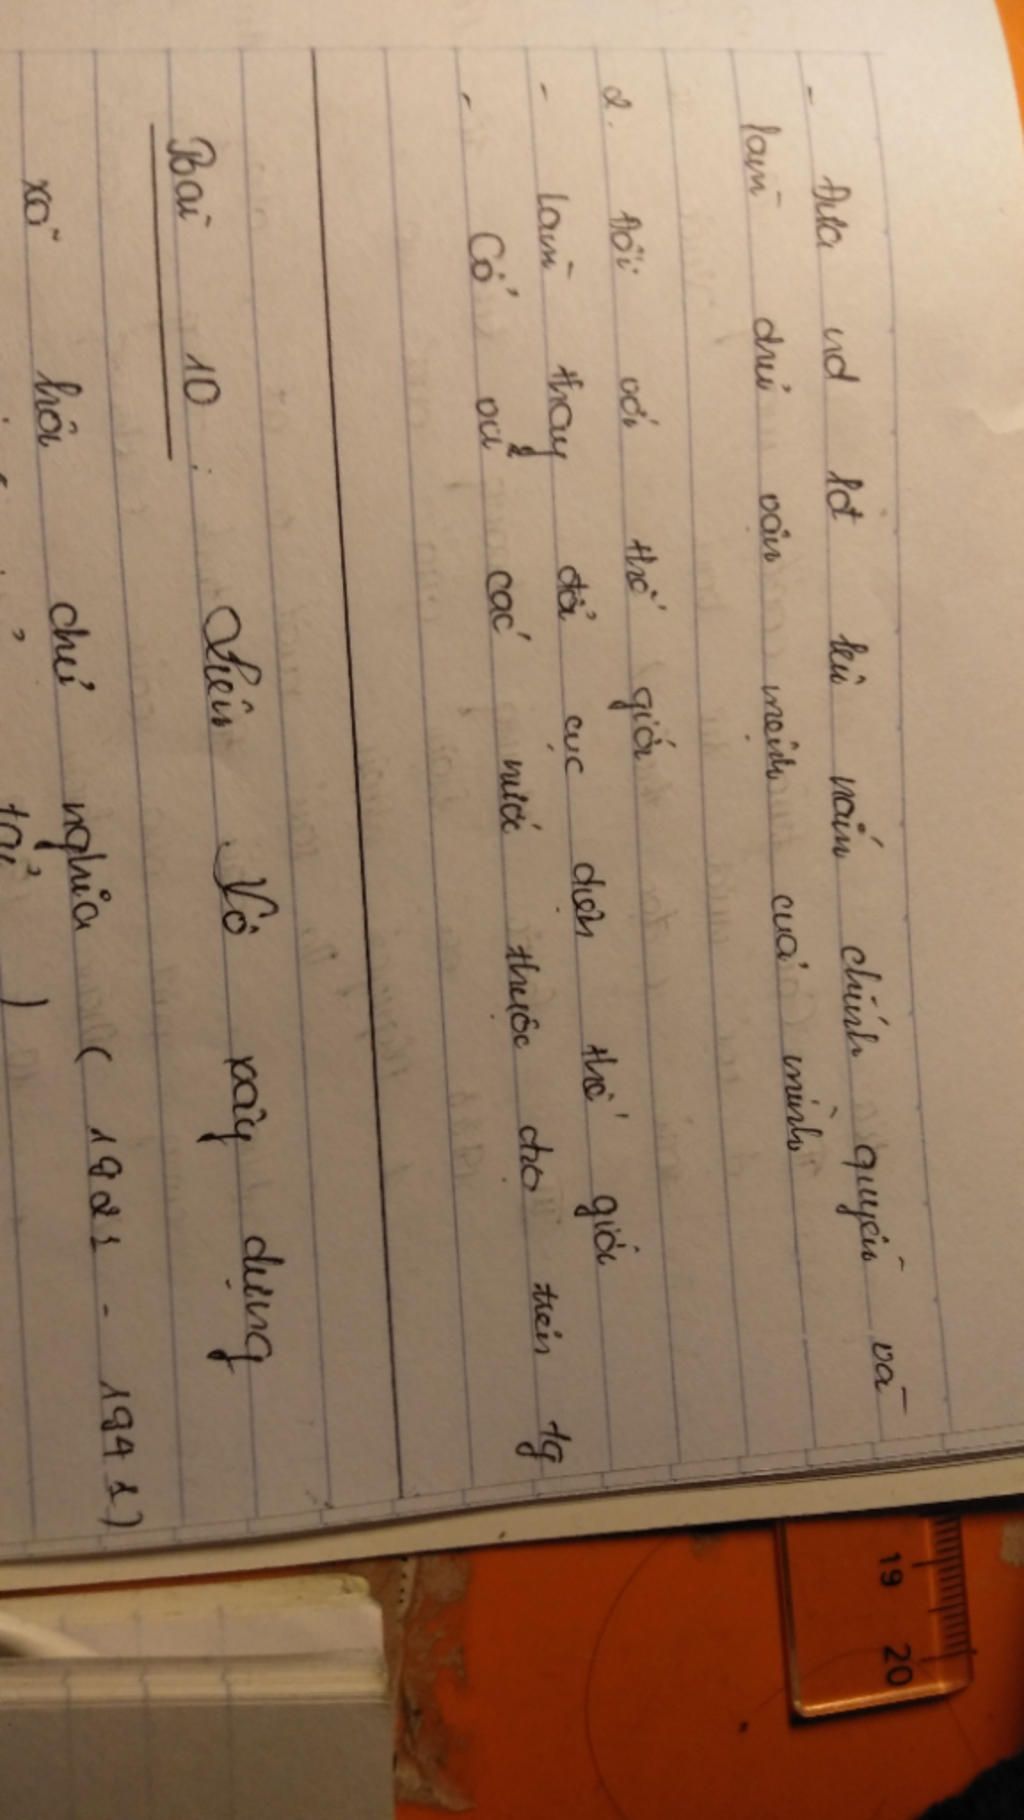 - Đưa nd lđ lên nắm chính quyền và
làm chủ vận mệnh của mình
2. Đối với thế giới
- Làm thay đổi cục diện thế giới
- Cổ vũ các nước thuộc địa trên tg
Bài 10: Liên Xô xây dựng
xã hội chủ nghĩa (1921 - 1941)
19 20